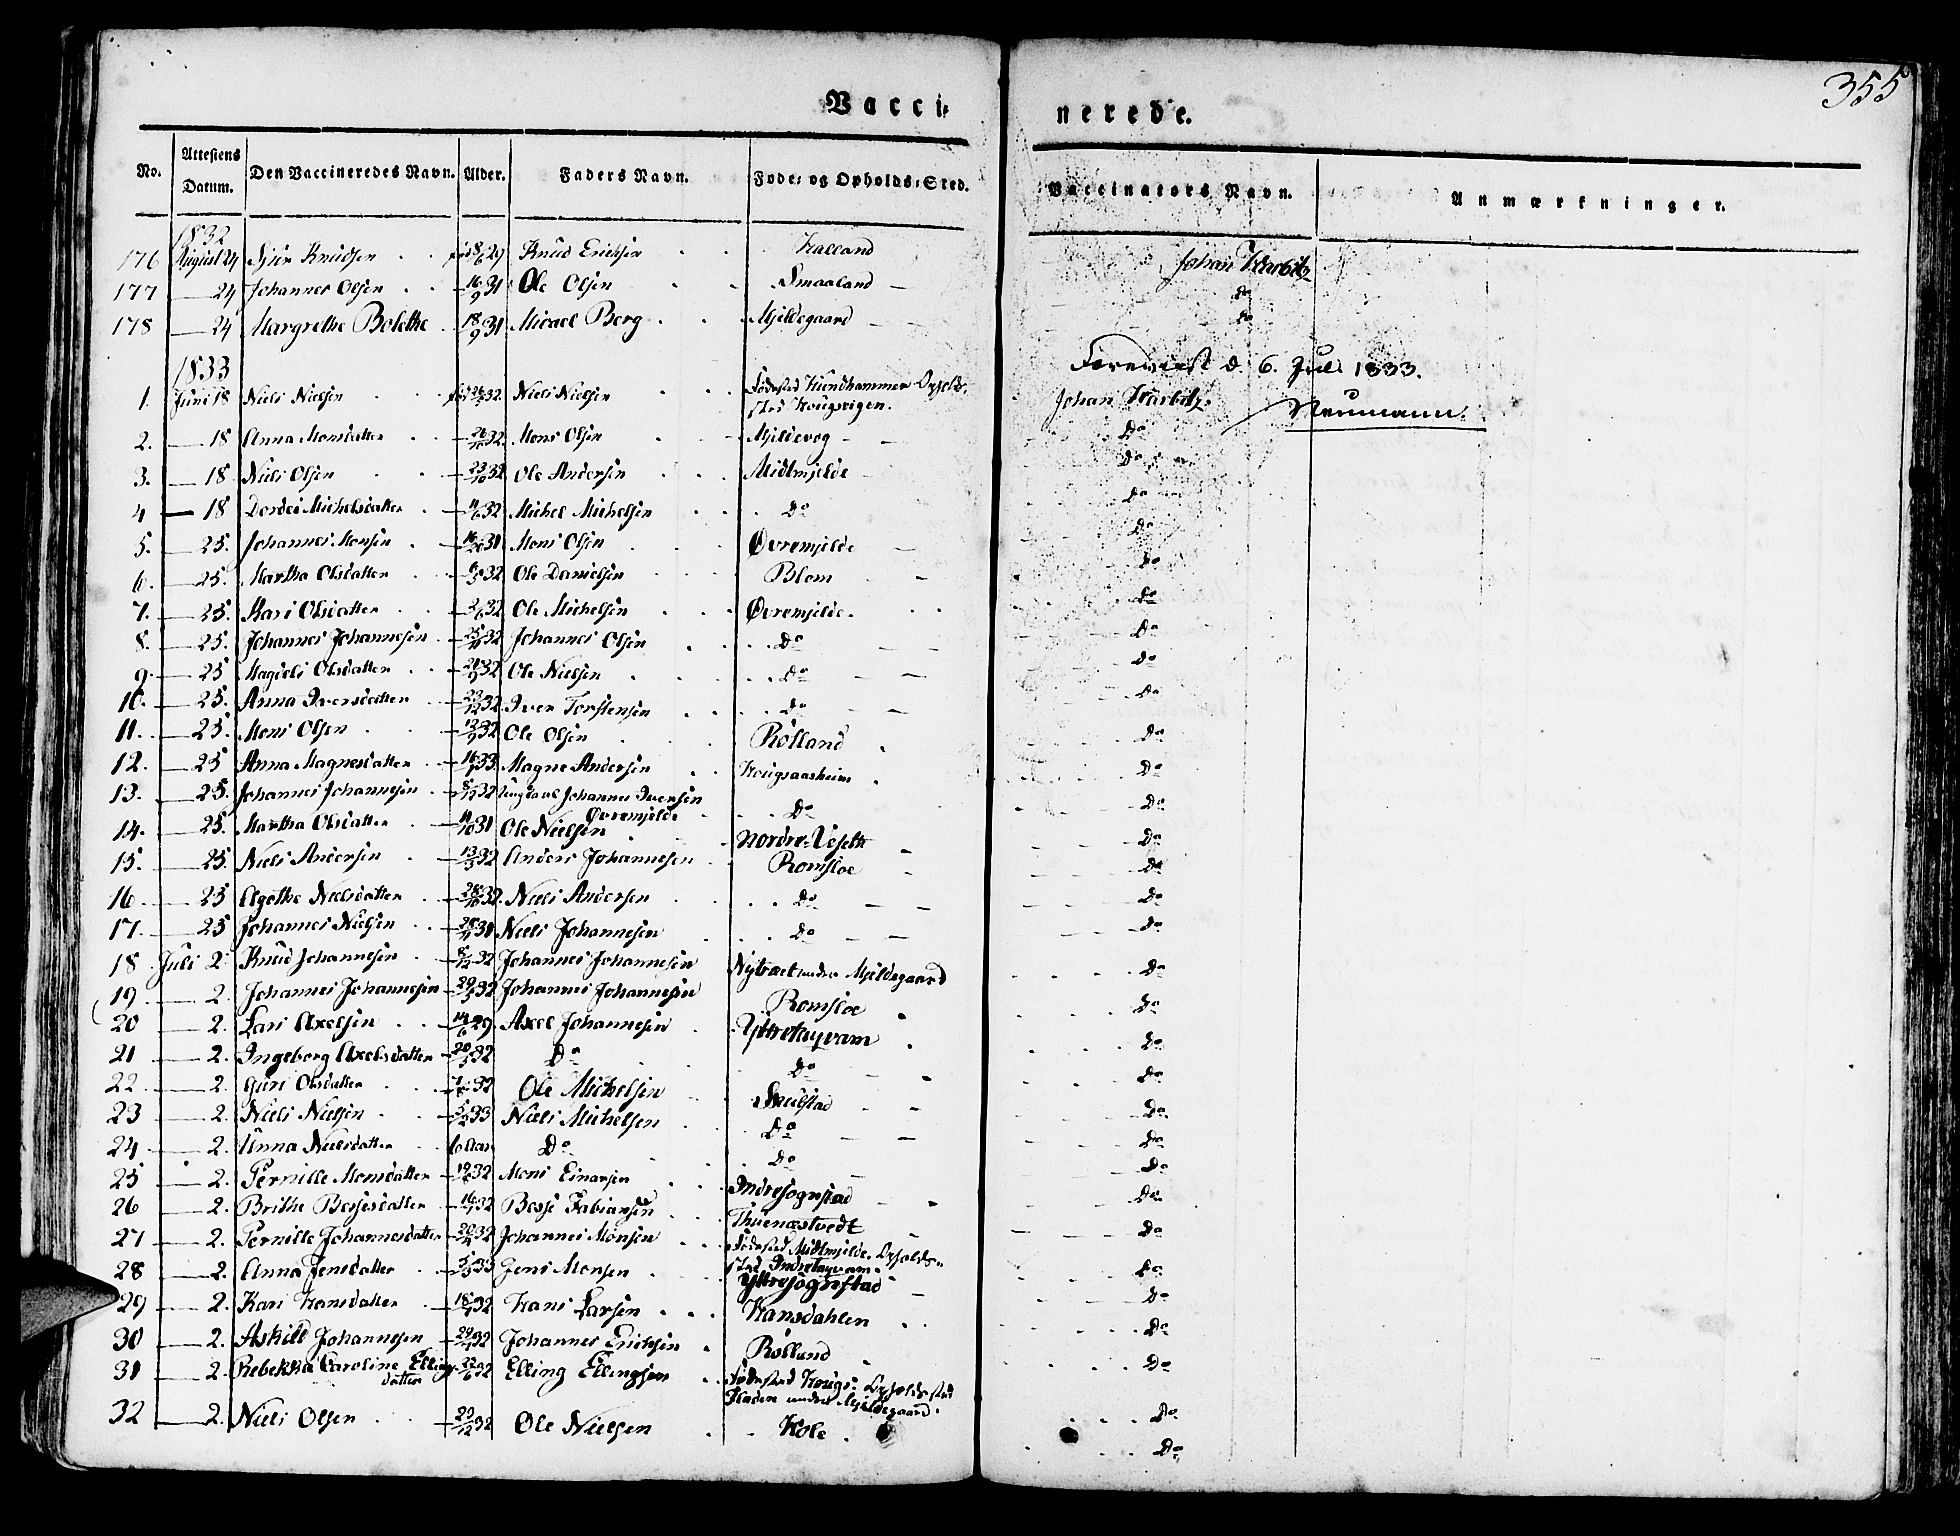 355
Vacci⸗ nerede.
No. Attestens Datum. Den Vaccineredes Navn. Alder. Faders Navn. Føde⸗ og Opholds⸗Sted. Vaccinators Navn. Anmærkninger.
1832
176 August 24 Knudsen 29 Knud Ericksen Halland Johan Warbitz
177 — 24 Johannes Olsen 16/9 31 Ole Olsen Smaaland Do
178 — 24 Margrethe Bolethe 18/9 31 Micael Berg Mjeldegaard Do
1833
Foreviist d. 6. Juli 1833.
Neumann.
1. Juni 18 Niels Nielsen 32 Niels Nielsen Fødested Hundhammer Opholds-
sted Hougsvigen. Johan Warbitz
2. — 18 Anna Monsdatter 32 Mons Olsen Mjeldevog Do
3. — 18 Niels Olsen 23/10 32 Ole Andersen Midtmjelde Do
4 — 18 Dordei Michelsdatter 32 Michel Michelsen Do Do
5. — 25. Johannes Monsen 31 Mons Olsen Øvremjelde Do
6. — 25. Martha Olsdatter 32 Ole Danielsen Blom Do
7. — 25 Kari Olsdatter 32 Ole Michelsen Øvremjelde Do
8. — 25. Johannes Johannesen 32 Johannes Olsen Do Do
9. — 25 Magdeli Olsdatter 32 Ole Nielsen Do Do
10. — 25. Anna Iversdatter 23/12 32 Iver Torstensen Do Do
11. — 25. Mons Olsen 12/9 32 Ole Olsen Rølland Do
12. — 25 Anna Magnesdatter 33 Magne Andersen Hougsaasheim Do
13. — 25. Johannes Johannesen 32 Ungkarl Johannes Iversen
Øvremjelde Do Do
14. — 25. Martha Olsdatter 11/10 31 Ole Nielsen Nordre-Veseth Do
15. — 25. Niels Andersen 32 Anders Johannesen Romsloe Do
16. — 25 Agethe Nielsdatter 28/10 32 Niels Andersen Do Do
17. — 25 Johannes Nielsen 31 Niels Johannesen Do Do
18 Juli 2 Knud Johannesen 8/12 32 Johannes Johannesen Nytræt under Mjeldegaard Do
19 — 2. Johannes Johannesen 32 Johannes Johannesen Romsloe Do
20 — 2. Lars Axelsen 14/6 29 Axel Johannesen Yttretayvam Do
21 — 2. Ingeborg Axelsdatter 32 Do Do Do
22 — 2. Guri Olsdatter 32 Ole Michelsen Skulstad Do
23 — 2. Niels Nielsen 33 Niels Michelsen Do Do
24 — 2. Anna Nielsdatter 6 Aar Do Do Do
25 — 2. Pernille Monsdatter 32 Mons Einarsen Indresognstad Do
26 — 2. Brithe Bessesdatter 32 Besse Fabiansen Thuenæstvedt Do
27 — 2. Pernille Johannesdatter 32 Johannes Monsen Fødested Midtmjelde. Opholds-
sted Indretayvam Do
28 — 2. Anna Jensdatter 33 Jens Monsen Yttresognstad Do
29 — 2. Kari Hansdatter 32 Hans Larsen Hansdahlen Do
30 — 2. Askild Johannesen 32 Johannes Ericksen Rølland Do
31 — 2. Rebekka Caroline Ellings-
datter 22/6 32 Elling Ellingsen Fødested Hougs: Opholdssted
Fladen under Mjeldegaard. Do
32 — 2. Niels Olsen 29/12 32 Ole Nielsen Hole Do